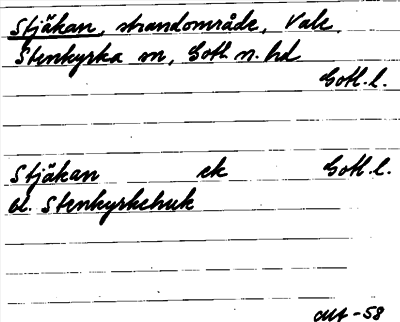 Stjäkan, strandområde, Vale,
Stenkyrka sn, Gotl. n. hd
Gotl. l.
Stjäkan ek Gotl. l.
al. Stenkyrkehuk
-58